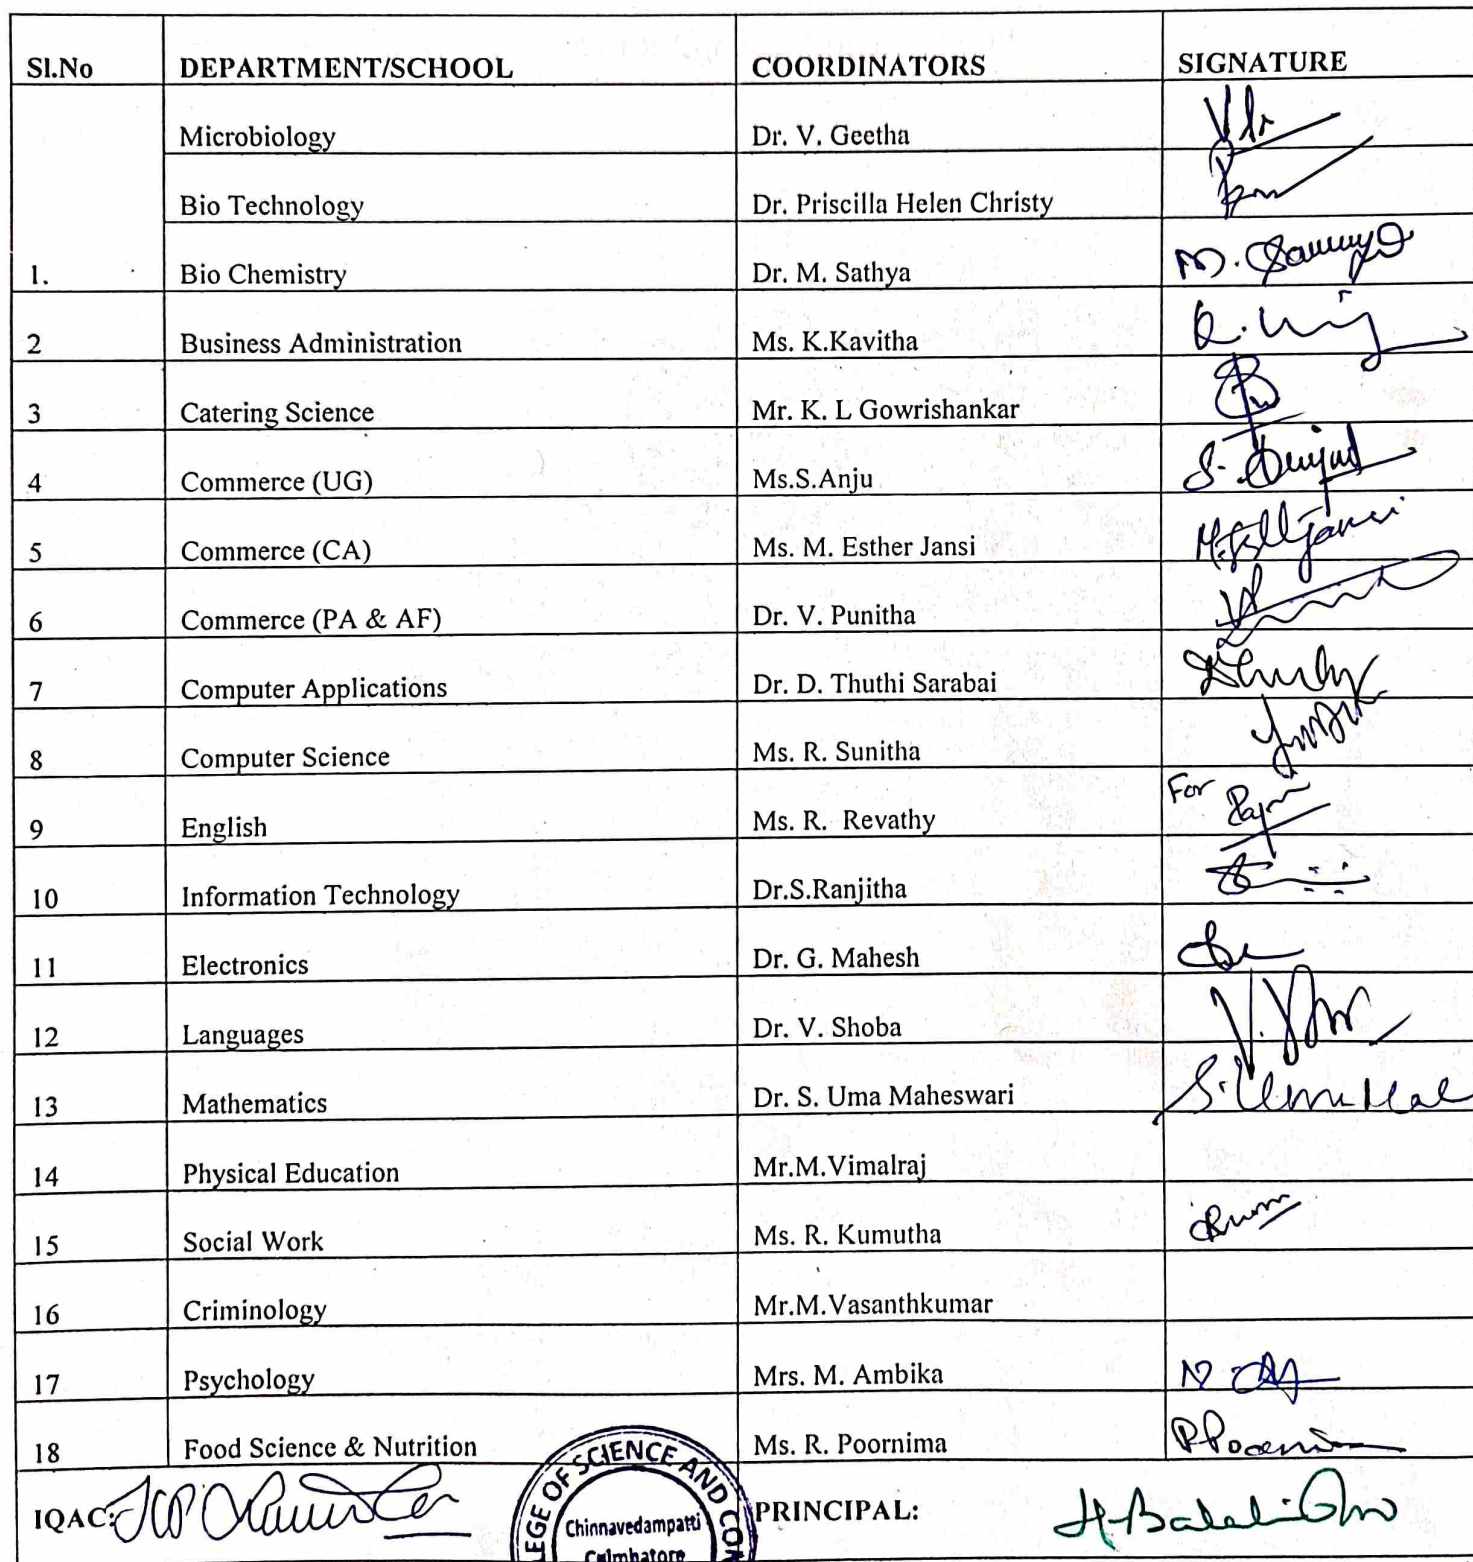 Sl.No DEPARTMENT/SCHOOL COORDINATORS SIGNATURE
Microbiology Dr. V. Geetha
Bio Technology Dr. Priscilla Helen Christy
1. Bio Chemistry Dr. M. Sathya
2 Business Administration Ms. K.Kavitha
3 Catering Science Mr. K. L Gowrishankar
4 Commerce (UG) Ms.S.Anju
5 Commerce (CA) Ms. M. Esther Jansi
6 Commerce (PA & AF) Dr. V. Punitha
7 Computer Applications Dr. D. Thuthi Sarabai
8 Computer Science Ms. R. Sunitha
9 English Ms. R. Revathy For
10 Information Technology Dr.S.Ranjitha
11 Electronics Dr. G. Mahesh
12 Languages Dr. V. Shoba
13 Mathematics Dr. S. Uma Maheswari
14 Physical Education Mr.M.Vimalraj
15 Social Work Ms. R. Kumutha
16 Criminology Mr.M.Vasanthkumar
17 Psychology Mrs. M. Ambika
18 Food Science & Nutrition Ms. R. Poornima P.Poornima
IQAC: PRINCIPAL:
LEGE OF SCIENCE AND COM
Chinnavedampatti
Coimbatore